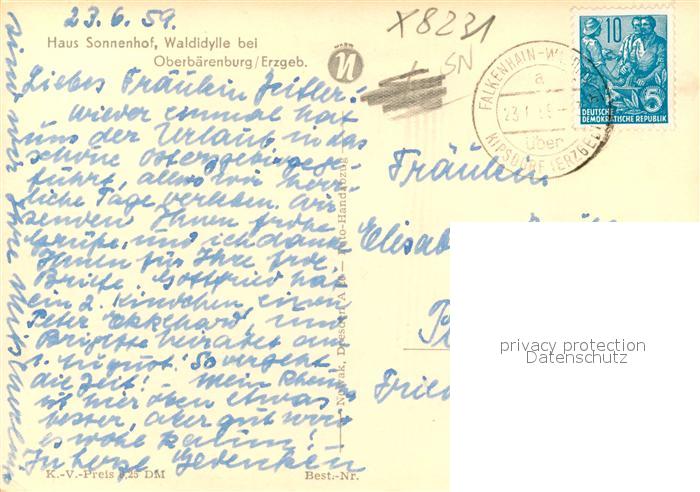 23.6.59.
X8231
SN
Haus Sonnenhof, Waldidylle bei
Oberbärenburg/Erzgeb.
Liebes Fräulein Zeitler!
Wieder einmal hat
uns der Urlaub in das
schöne Osterzgebirge ge-
führt, allwo wir herr-
liche Tage verleben. Wir
senden Ihnen frohe
Grüße, und ich danke
Ihnen für Ihre
Briefe. Gottfried hat
ein 2. Kindchen, einen
Peter Ekkehard und
Brigitte heiratet am
1. August! So vergeht
die Zeit! – Mein Rheuma
ist hier oben etwas
besser, aber gut wird
es wohl kaum!
In Gedenken
K.-V.-Preis 0,25 DM
Best.-Nr.
Nowak, Dresden A
Foto-Handabzug
FALKENHAIN-
a
23.
über
KIPSDORF (ERZGEB)
10
5
DEUTSCHE
DEMOKRATISCHE REPUBLIK
Fräulein
privacy protection
Datenschutz